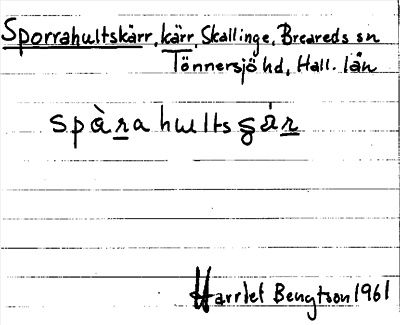 Sporrahultskärr, kärr, Skallinge, Breareds sn
Tönnersjö hd, Hall. län
spàrahultsgár
Harriet Bengtson 1961